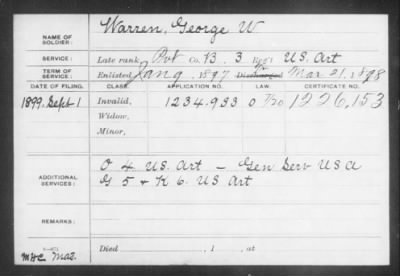 NAME OF SOLDIER: Warren, George W
SERVICE: Late rank, Pvt Co. B, 3 Reg't U.S. Art
TERM OF SERVICE: Enlisted Jan 9, 1897 Discharged Mar 21, 1898
DATE OF FILING. CLASS. APPLICATION NO. LAW. CERTIFICATE NO.
1899, Sept 1 Invalid, 1234.933 1226,153
Widow,
Minor,
ADDITIONAL SERVICES: O 4. U.S. Art — Gen Serv U S A
G 5 & K 6. U S Art
REMARKS:
Died , 1 , at